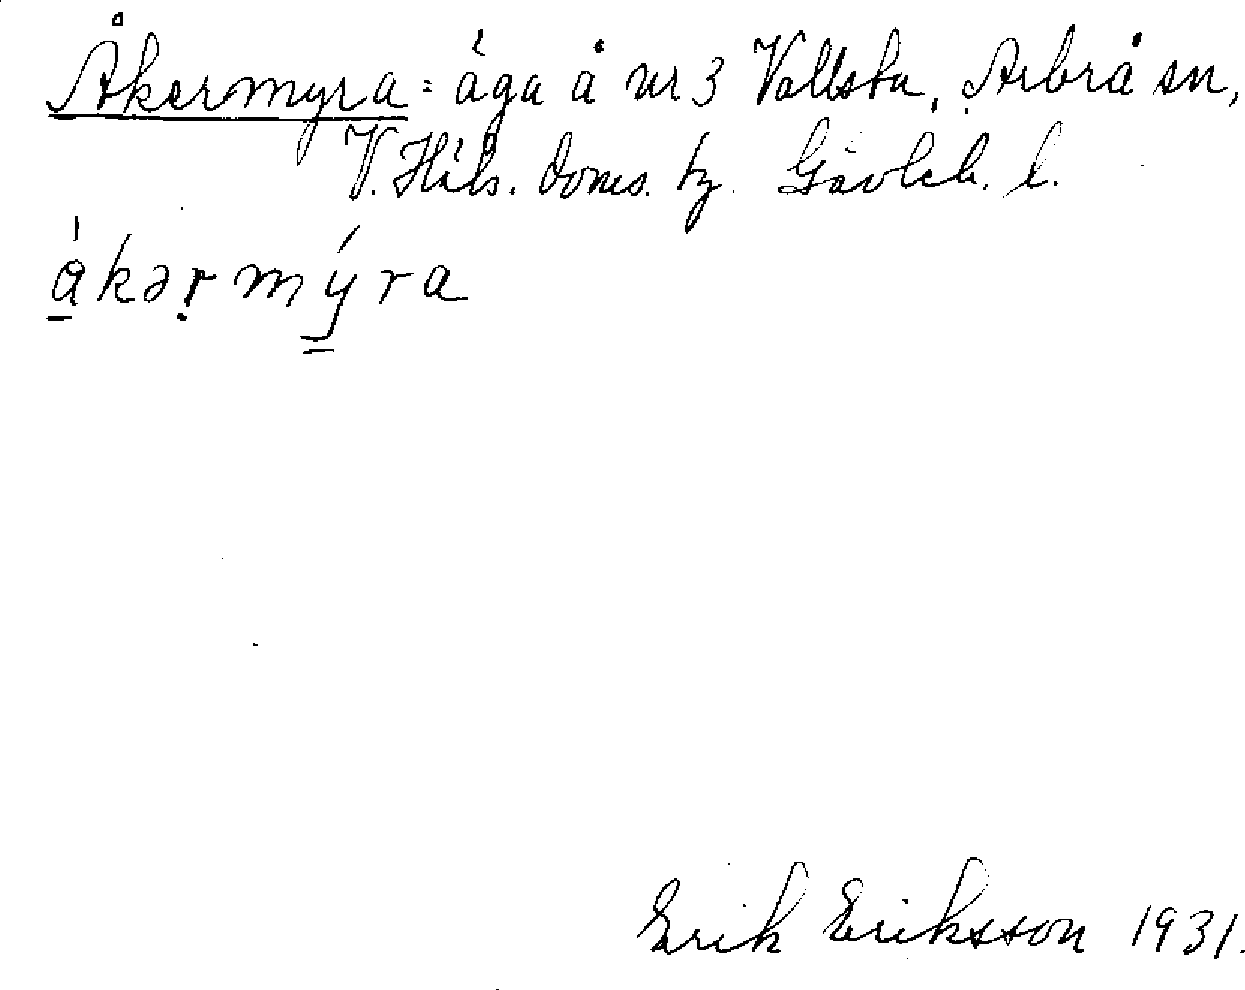 Åkermyra = äga å nr 3 Vallsta, Arbrå sn,
V. Häls. doms. tg. Gävleb. l.
ákərmýra
Erik Eriksson 1931.